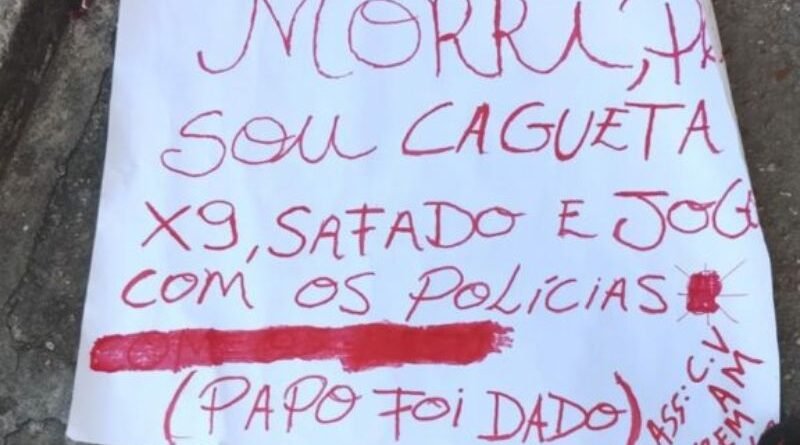 MORRI,
SOU CAGUETA
X9, SAFADO E JOGO
COM OS POLÍCIAS
(PAPO FOI DADO)
ASS: C.V